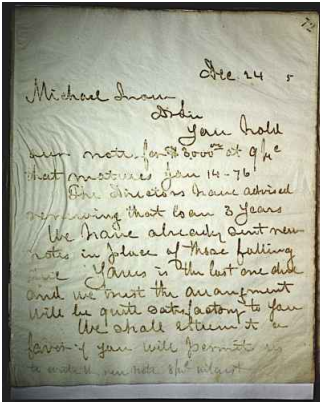 72
Dec 24 5
Michael
Dr Sir
You hold
our note for $3000 00 at 9 pc
that matures Jan 14-76
The directors have advised
renewing that loan 3 years
We have already sent new
notes in place of those falling
due Yours is the last one due
and we trust the arrangment
will be quite satisfactory to you
We shall esteem it a
favor if you will permit us
to the new note